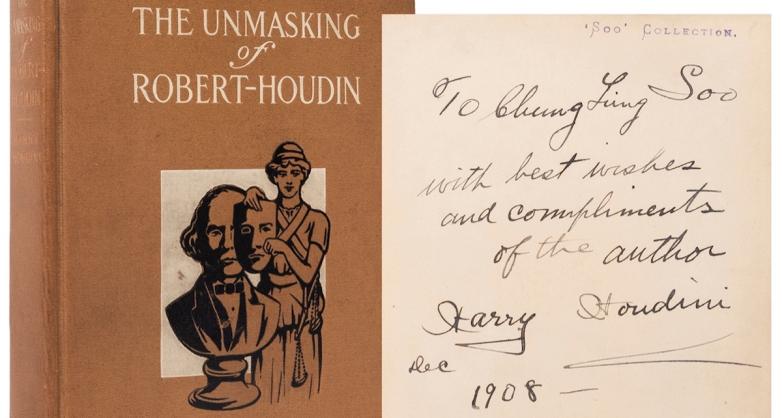 THE UNMASKING
of
ROBERT-HOUDIN
'Soo' COLLECTION.
To Chung Ling Soo
with best wishes
and compliments
of the author
Harry Houdini
Dec
1908 —